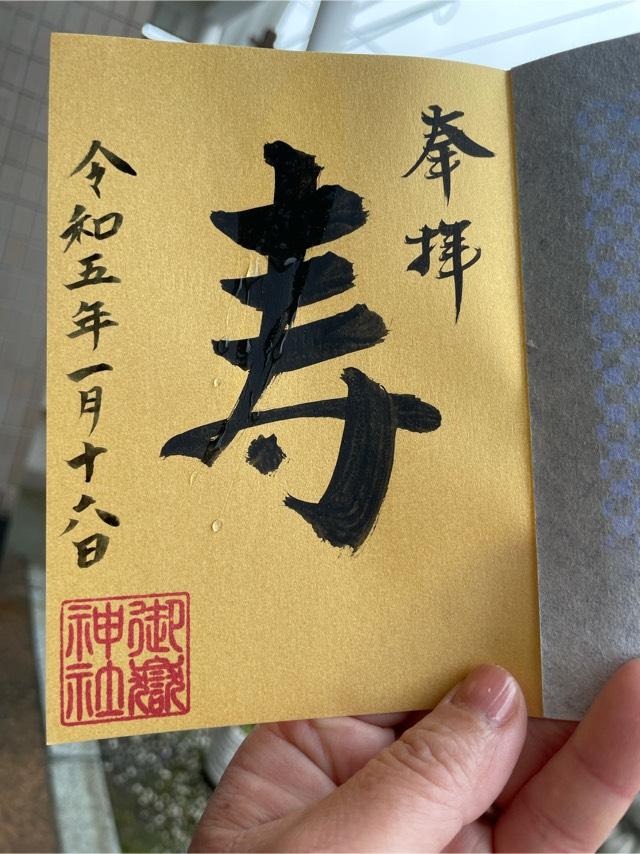 奉拝
寿
令和五年一月十六日
御嶽
神社